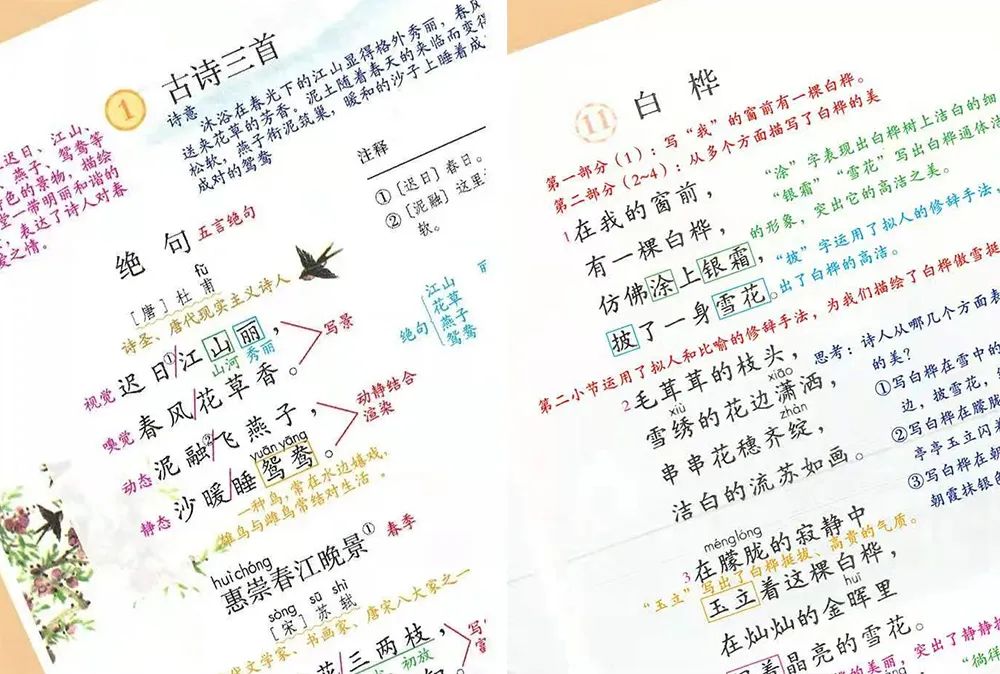 1
古诗三首
诗意 沐浴在春光下的江山显得格外秀丽，春风
送来花草的芳香。泥土随着春天的来临而变得
松软，燕子衔泥筑巢，暖和的沙子上睡着成
成对的鸳鸯
迟日、江山、
、燕子、鸳鸯等
色的景物，描绘
堂一带明丽和谐的
，表达了诗人对春
爱之情。
注释
①［迟日］春日。
②［泥融］这里
软。
绝句 五言绝句
fǔ
［唐］杜甫
诗圣、唐代现实主义诗人
视觉 迟日①/江山丽，
山河 秀丽
写景
嗅觉 春风/花草香。
动态 泥融②/飞燕子，
动静结合
渲染
yuān yāng
静态 沙暖/睡鸳鸯。
一种鸟，常在水边嬉戏，
雄鸟与雌鸟常结对生活。
绝句
江山 丽
花草
燕子
鸳鸯
huì chóng
惠崇春江晚景① 春季
sòng sū shì
［宋］苏轼
代文学家、书画家、唐宋八大家之一
花/三两枝，
初放
写
11
白桦
第一部分（1）：写“我”的窗前有一棵白桦。
第二部分（2~4）：从多个方面描写了白桦的美
1 在我的窗前，
“涂”字表现出白桦树上洁白的细
有一棵白桦，
“银霜”“雪花”写出白桦通体洁
的形象，突出它的高洁之美。
仿佛涂上银霜，
“披”字运用了拟人的修辞手法，
出了白桦的高洁。
披了一身雪花。
第二小节运用了拟人和比喻的修辞手法，为我们描绘了白桦傲雪挺
2 毛茸茸的枝头，
xiù xiāo
雪绣的花边潇洒，
zhàn
串串花穗齐绽，
洁白的流苏如画。
思考：诗人从哪几个方面表
的美？
①写白桦在雪中的
边，披雪花，
②写白桦在朦胧
亭亭玉立闪
③写白桦在朝
朝霞抹银的
méng lóng
3 在朦胧的寂静中
“玉立”写出了白桦挺拔、高贵的气质。
玉立着这棵白桦，
huī
在灿灿的金晖里
着晶亮的雪花。
的美丽，突出了静静挺
“徜徉